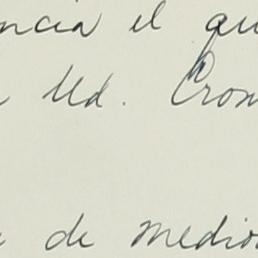 ncia el qu
Ud. Crom
de medios